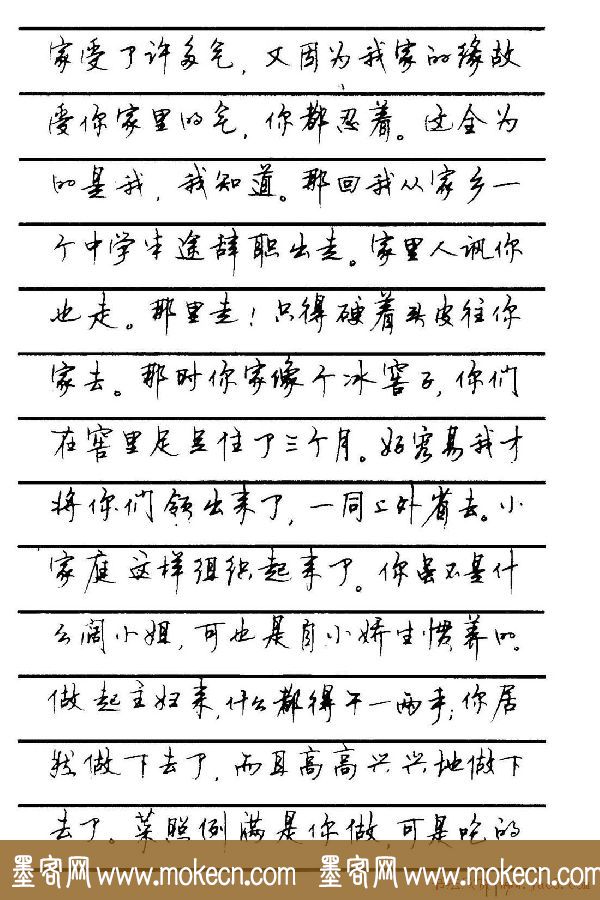 家受了许多气，又因为我家的缘故
受你家里的气，你都忍着。这全为
的是我，我知道。那回我从家乡一
个中学半途辞职出走。家里人讽你
也走。那里走！只得硬着头皮往你
家去。那时你家像个冰窖子，你们
在窖里足足住了三个月。好容易我才
将你们领出来了，一同上外省去。小
家庭这样组织起来了。你虽不是什
么阔小姐，可也是自小娇生惯养的。
做起主妇来，什么都得干一两手；你居
然做下去了，而且高高兴兴地做下
去了。菜照例满是你做，可是吃的
墨客网 www.mokecn.com 墨客网 www.mokecn.com